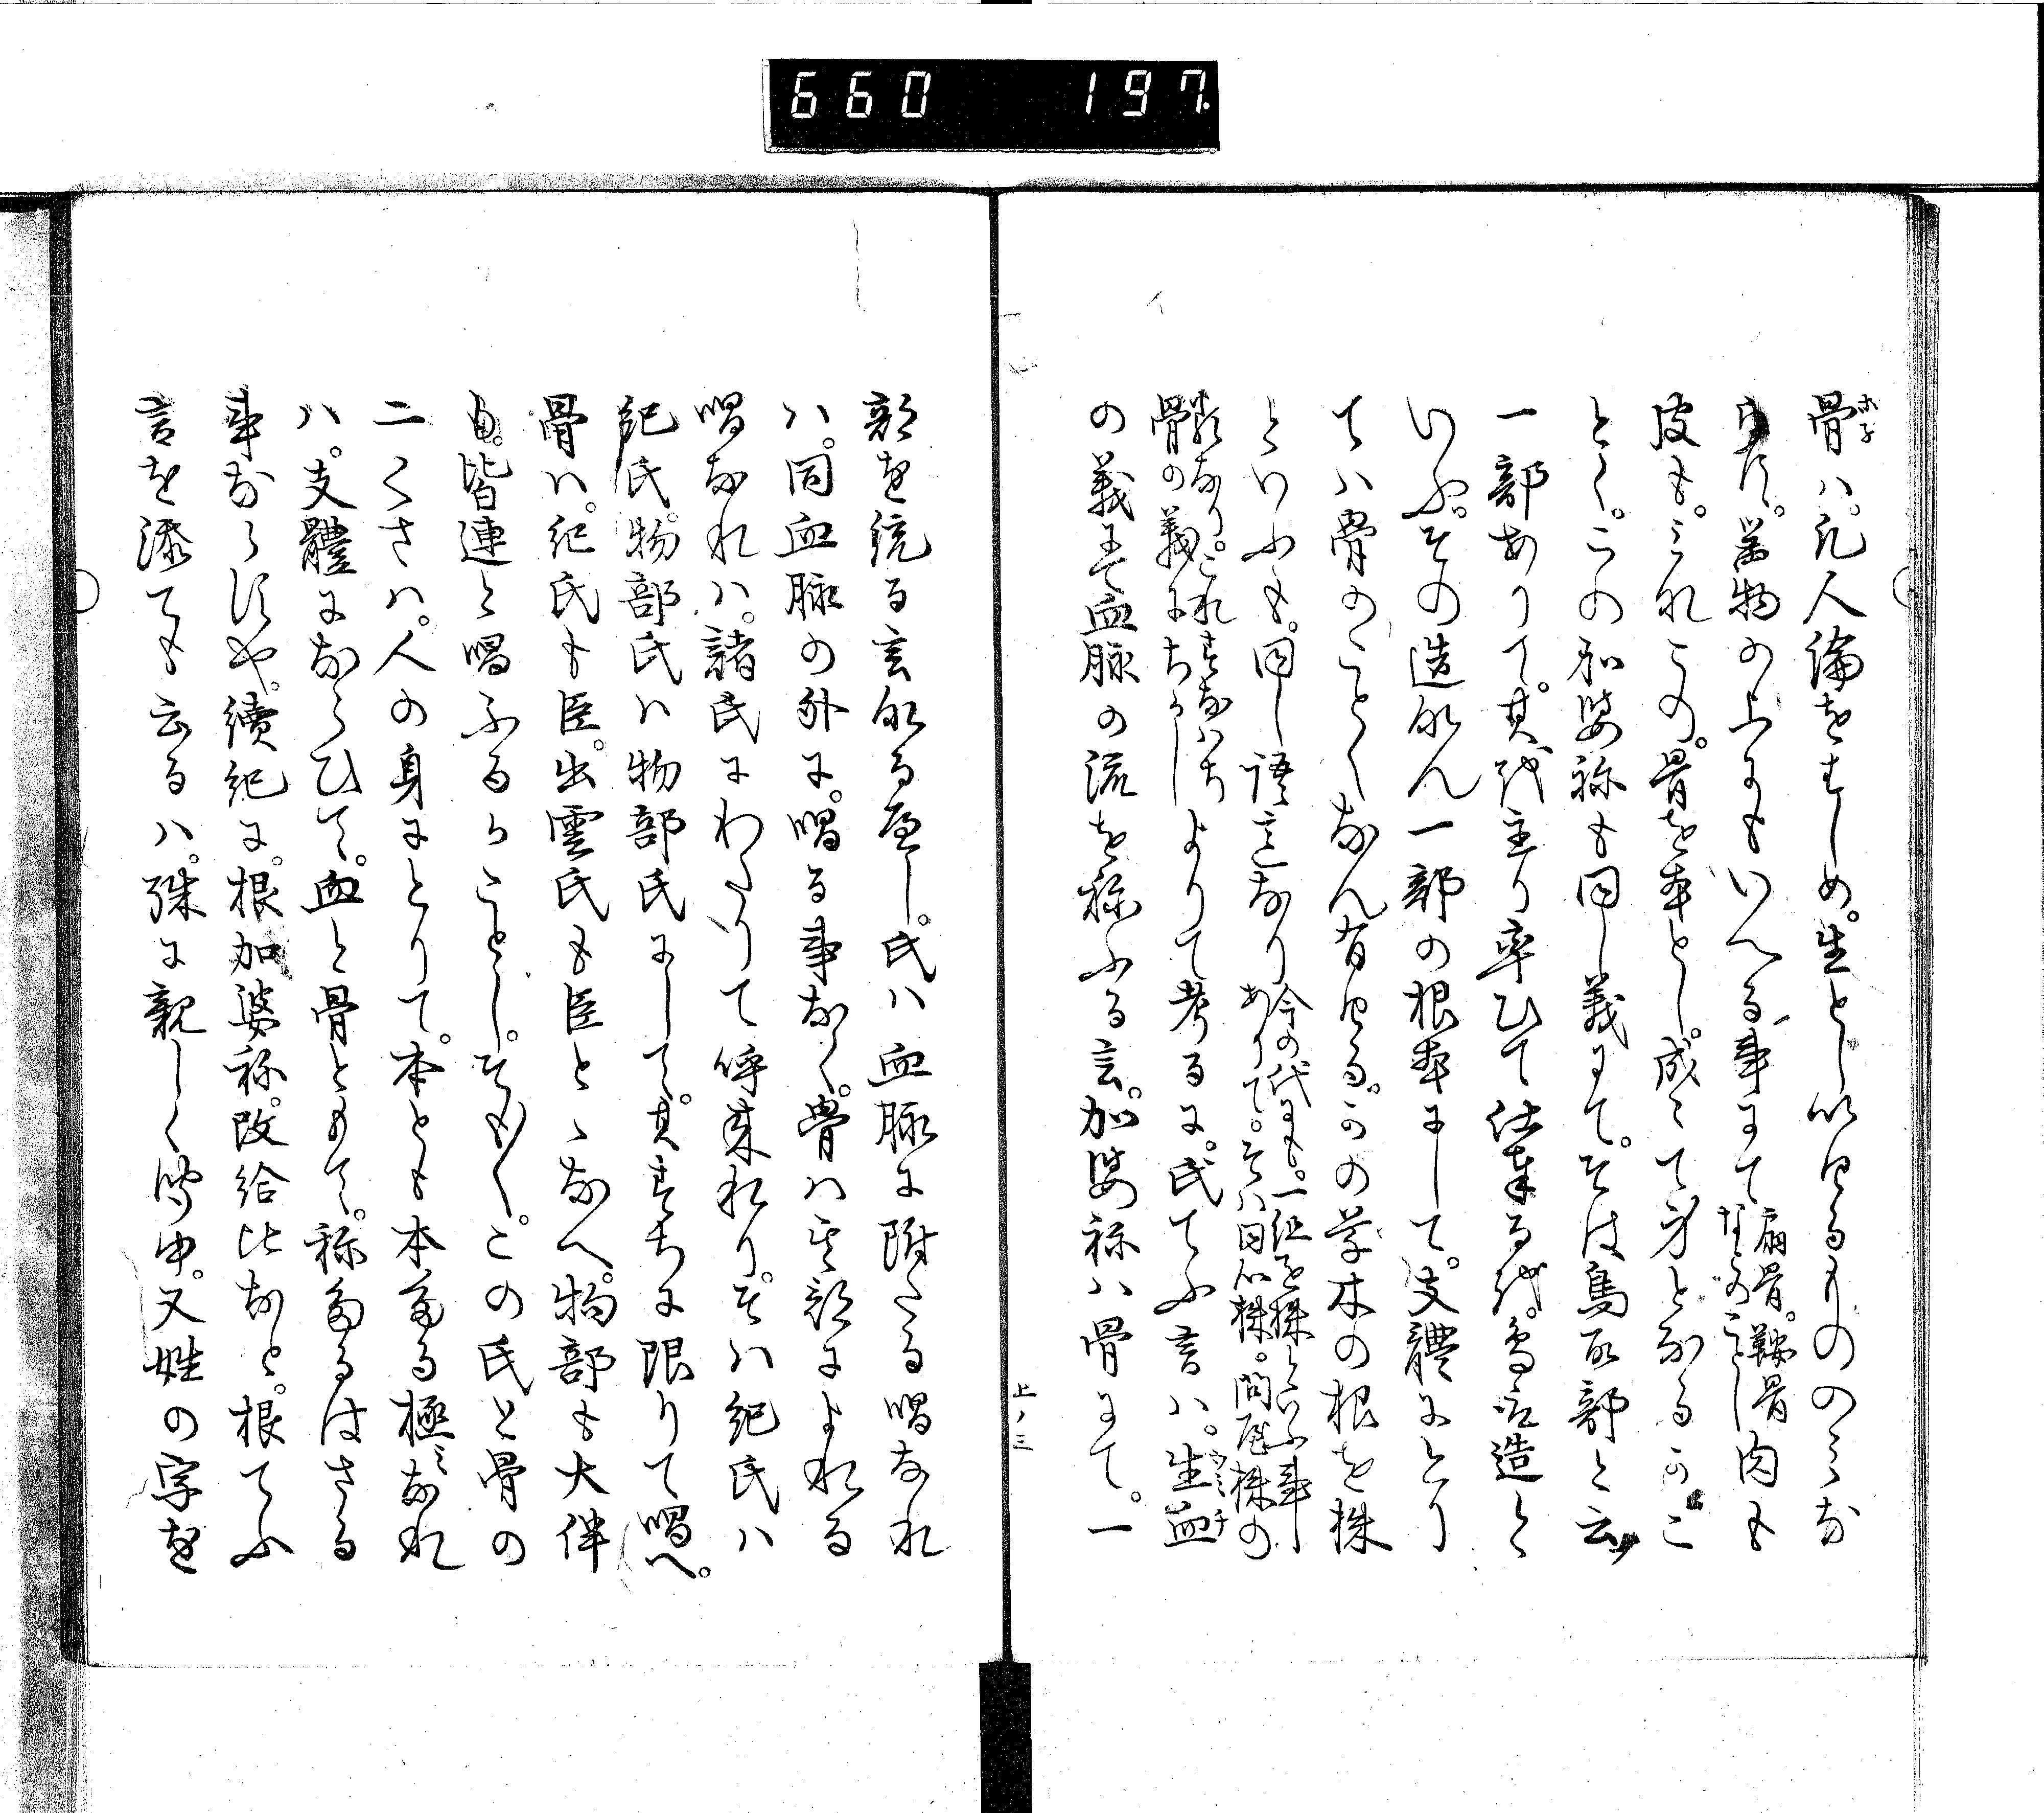 660 197
骨ハ。凡人倫をはしめ。生とし以けるものゝミな
らす。器物の上にもいへる事にて 扇骨。鞍骨なとのことし 肉も
皮も。ミれこの。骨を本とし。成こて身となるかこ
とく。この加婆祢も同し義にて。そは鳥取部と云
一部ありて。其代主り率ひて仕奉る代。鳥取造と
いふ。その造なん一部の根本にして。支體にとり
てハ骨のことくなん有ける。かの草木の根を株
といふも。同し語言なり 今の代にも。一組を株といふ事ありて。そハ同心株。問屋株の
類なり。これすなハち骨の義にちかし よりて考るに。氏てふ言ハ。生血
の義にて血脉の流を称ふる言。加婆祢ハ骨にて。一
上ノ三
部を統る言なるへし。氏ハ血脉に附たる唱なれ
ハ。同血脉の外に。唱る事なく。骨ハ其部によれる
唱なれハ。諸氏にわたりて呼来れり。そハ紀氏ハ
紀氏。物部氏ハ物部氏にして。其すちに限りて唱へ。
骨ハ。紀氏も臣。出雲氏も臣とゝなへ。物部も大伴
も。皆連と唱ふるかことし。そも〳〵。この氏と骨の
二くさハ。人の身にとりて。本とも本なる極ミなれ
ハ。支體にならひて。血と骨ともて。称なるはさる
事ならすや。續紀に。根加婆祢。改給比なと。根てふ
言を添ても云るハ。殊に親しく聞ゆ。又姓の字を